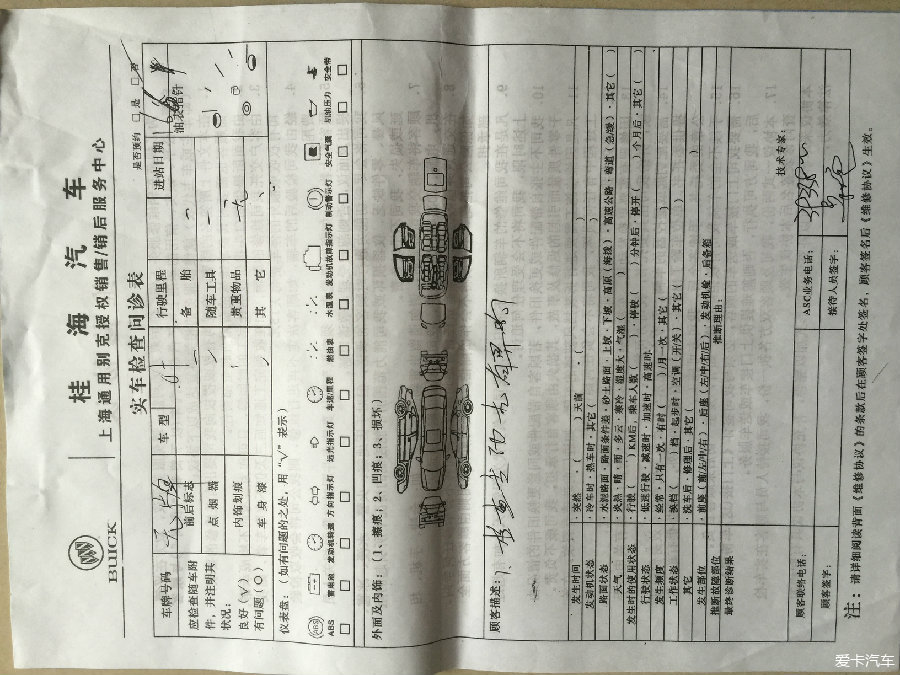 桂海汽车
上海通用别克授权销售/销后服务中心
BUICK
实车检查问诊表
是否预约 □是 □否
车牌号码 无牌 车型 行驶里程 进站日期
应检查随车附件，并注明其状况：
良好（√）
有问题（○）
前后标志 备胎 油表指针
点烟器 随车工具
内饰划痕 贵重物品 无
车身漆 其它
仪表盘：（如有问题的之处，用“√”表示）
ABS 蓄电池 发动机转速 方向指示灯 远光指示灯 车速/里程 燃油表 水温表 发动机故障指示灯 制动警示灯 安全气囊 机油压力 安全带
外面及内饰：（1、擦痕；2、凹痕；3、损坏）
顾客描述：
发生时间 ·突然 （ ）天前 ·（ ）
发动机状态 ·冷车时·热车时·其它（ ）
路面状态 ·水泥路面·路面条件差·砂土路面·上坡·下坡·高原（海拔）·高速公路·弯道（急/缓）·其它（ ）
天气 ·炎热·晴·雨·多云·寒冷·湿度大·气温（ ）
发生时的使用状态 ·行驶（ ）KM后，乘车人数（ ）·停驶（ ）分钟后·停开（ ）个月后·其它（ ）
行驶状态 ·低速行驶·减速时·加速时·高速时
发生频度 ·经常·只有一次·有时（ ）/月 次·其它（ ）
工作状态 ·换档（ ）档·起步时·空调（开/关）·其它（ ）
其它 ·洗车后·修理后·其它（ ）
发生部位 ·前座（前/左/中/右）·后座（左/中/右/后）·发动机舱·后备箱
推断故障部位 推断理由：
最终诊断结果
技术专家：
顾客联络电话： ASC业务电话：
顾客签字： 接待人员签字：
注：请详细阅读背面《维修协议》的条款后在顾客签字处签名，顾客签名后《维修协议》生效。
爱卡汽车